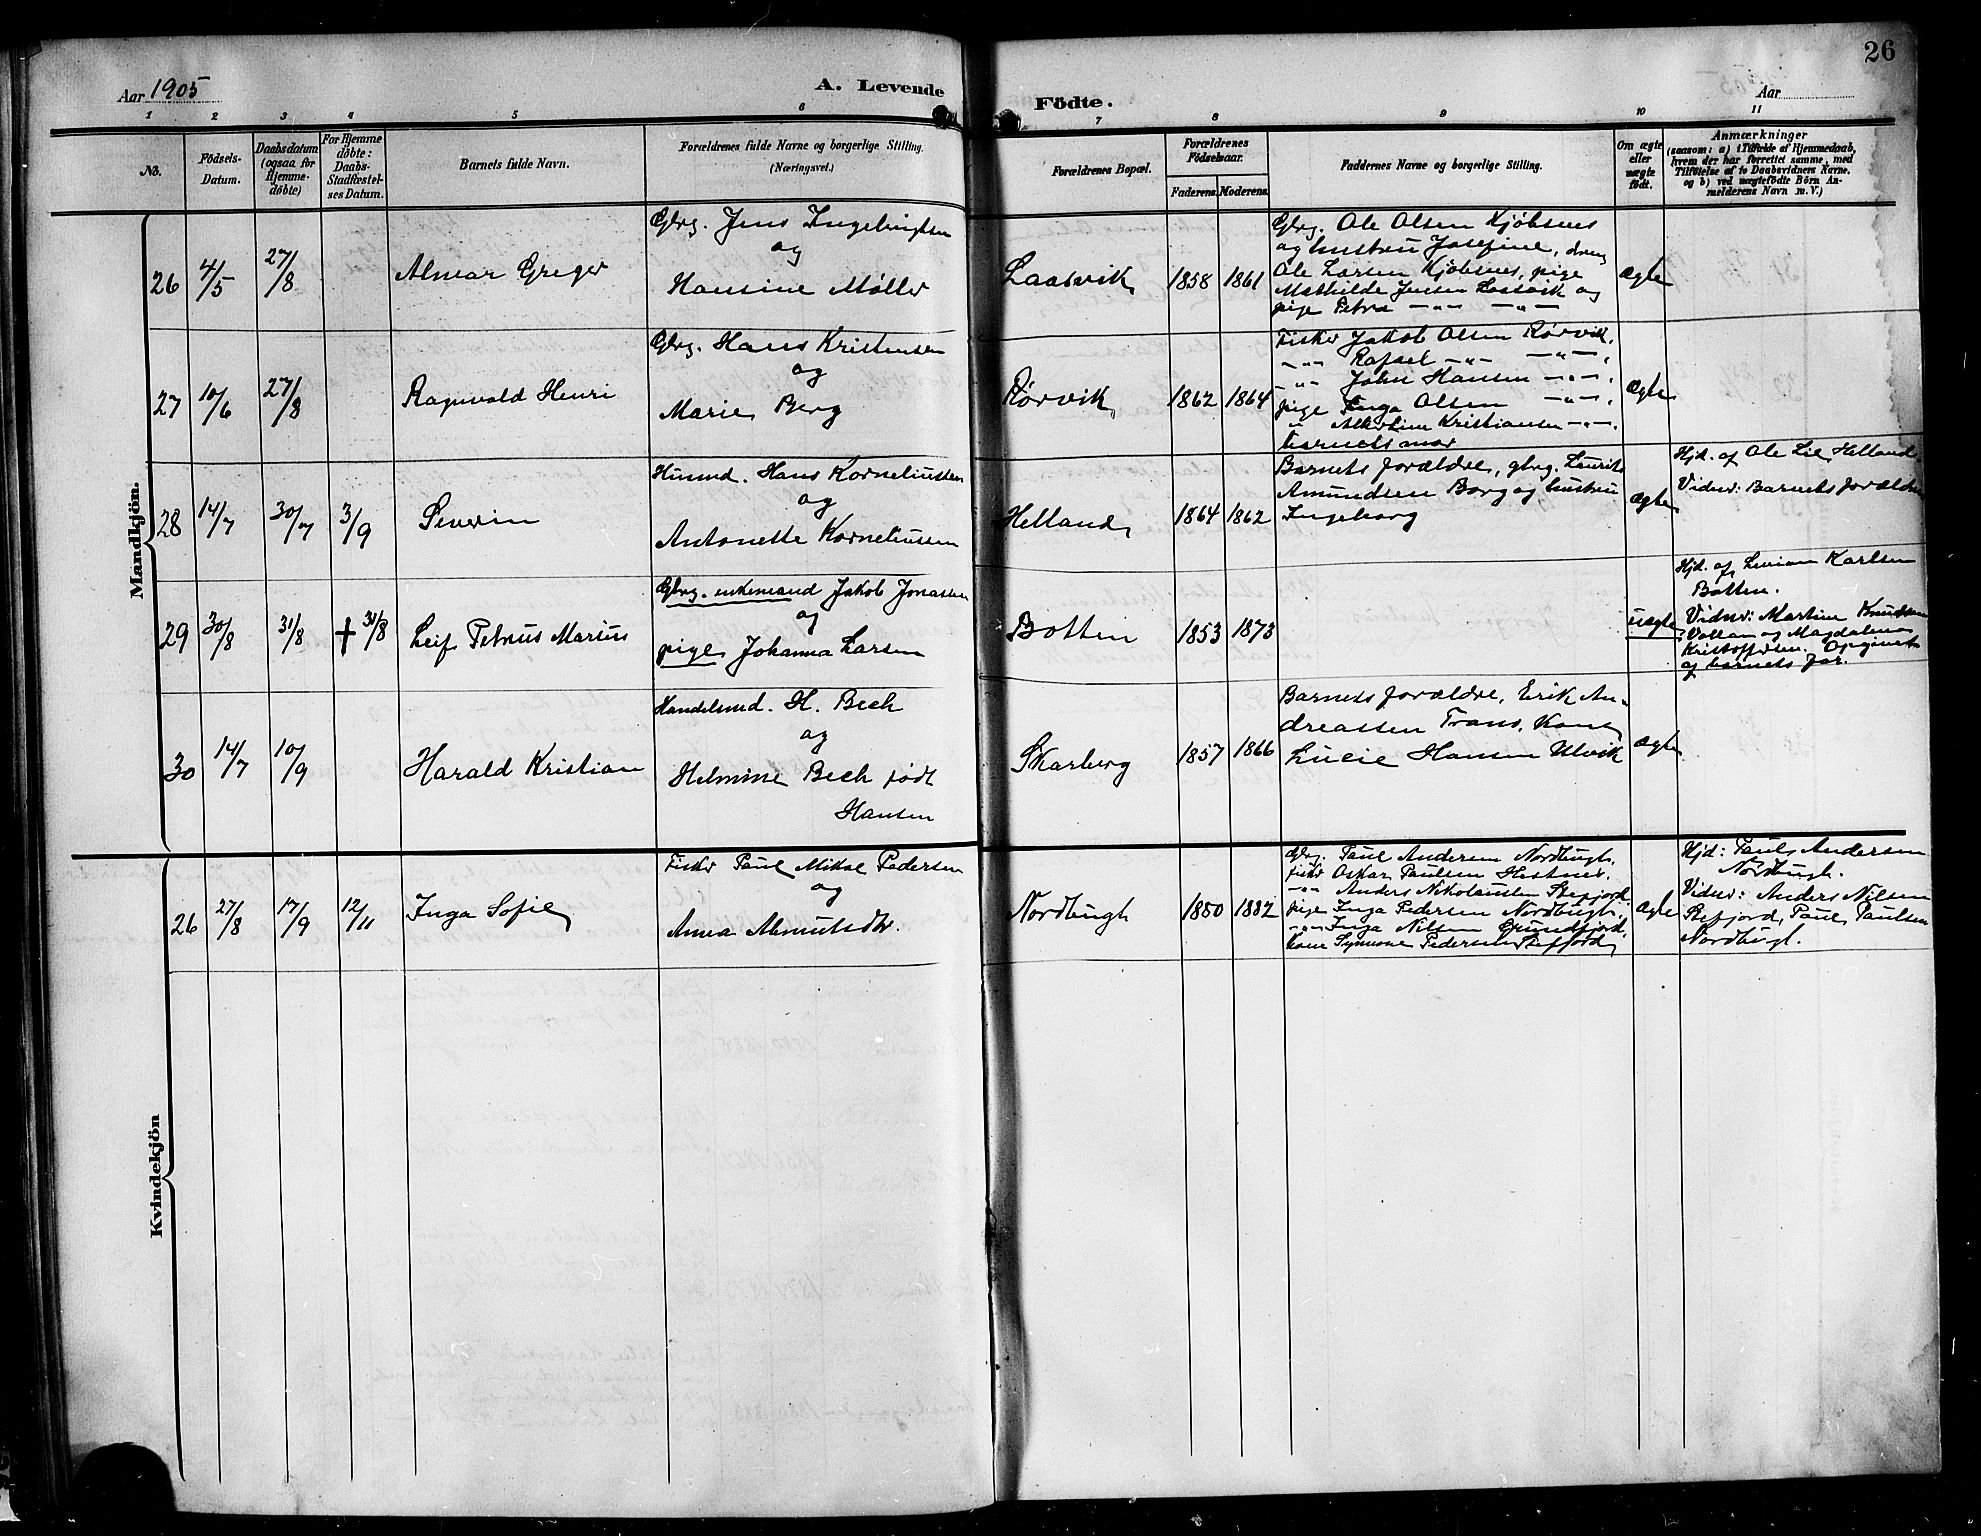 26
Aar 1905
A. Levende Födte.
Aar
1 2 3 4 5 6 7 8 9 10 11
No.
Fødsels-
Datum.
Daabsdatum
(ogsaa før
Hjemme-
døbte)
For Hjemme
døbte:
Daabs-
Stadfæstel-
ses Datum.
Barnets fulde Navn.
Forældrenes fulde Navne og borgerlige Stilling.
(Næringsvei.)
Forældrenes Bopæl.
Forældrenes
Fødselsaar.
Faderens. Moderens.
Faddernes Navne og borgerlige Stilling.
Om ægte
eller
uægte
født.
Anmærkninger
(saasom: a) i Tilfælde af Hjemmedaab,
hvem der har forrettet samme, med
Tilføielse af to Daabsvidners Navne,
og b) ved uægtefødte Börn An-
melderens Navn m. V.)
Mandkjön.
26 4/5 27/8
Almar Greger
Gbrg. Jens Ingebrigtsen
og
Hansine Møller
Laasvik
1858 1861
Gbrg. Ole Olsen Kjöbsnes
og hustru Josefine, dreng
Ole Larsen Kjöbsnes, pige
Mathilde Jensen Laasvik og
pige Petra -"- -"-
ægte
27 10/6 27/8
Ragnvald Henri
Gbrg. Hans Kristensen
og
Marie Berg
Rørvik
1862 1864
Fisker Jakob Olsen Rørvik,
-"- Rafael -"- -"-,
-"- John Hansen -"-,
pige Inga Olsen -"-,
" Albertine Kristiansen -"-.
barnets mor
ægte
28 14/7 30/7 3/9
Severin
Husmd. Hans Korneliussen
og
Antonette Korneliussen
Helland
1864 1862
Barnets forældre, gbrg. Laurits
Amundsen Borg og hustru
Ingeborg
ægte
Hjd. af Ole Lie, Helland.
Vidner: Barnets forældre
29 30/8 31/8 † 31/8
Leif Petrus Marius
Gbrg. enkemand Jakob Jonassen
og
pige Johanna Larsen
Botten
1853 1873
uægte
Hjd. af Karlsen
Botten.
Vidner: Martine Knudsen
og Magdalena
Kristoffersen. Opgivet
af barnets far.
30 14/7 10/9
Harald Kristian
Handelsmd. H. Bech
og
Helmine Bech født
Hansen
Skarberg
1857 1866
Barnets forældre, Erik An-
dreassen Trans, Kone
Lucie Hansen Ulvik
ægte
Kvindekjön
26 27/8 17/9 12/11
Inga Sofie
Fisker Paul Mikal Pedersen
og
Anna Almutsdtr.
Nordbugt
1850 1882
Gbrg. Paul Andersen Nordbugt,
fisker Oskar Paulsen Hestnes,
-"- Anders Nikolaisen Stefjord,
pige Inga Pedersen Nordbugt,
-"- Inga Nilsen Grundfjord,
Kone Pedersen Stefjord
ægte
Hjd: Paul Andersen
Nordbugt.
Vidner: Anders Nilsen
Stefjord, Paul Paulsen
Nordbugt.